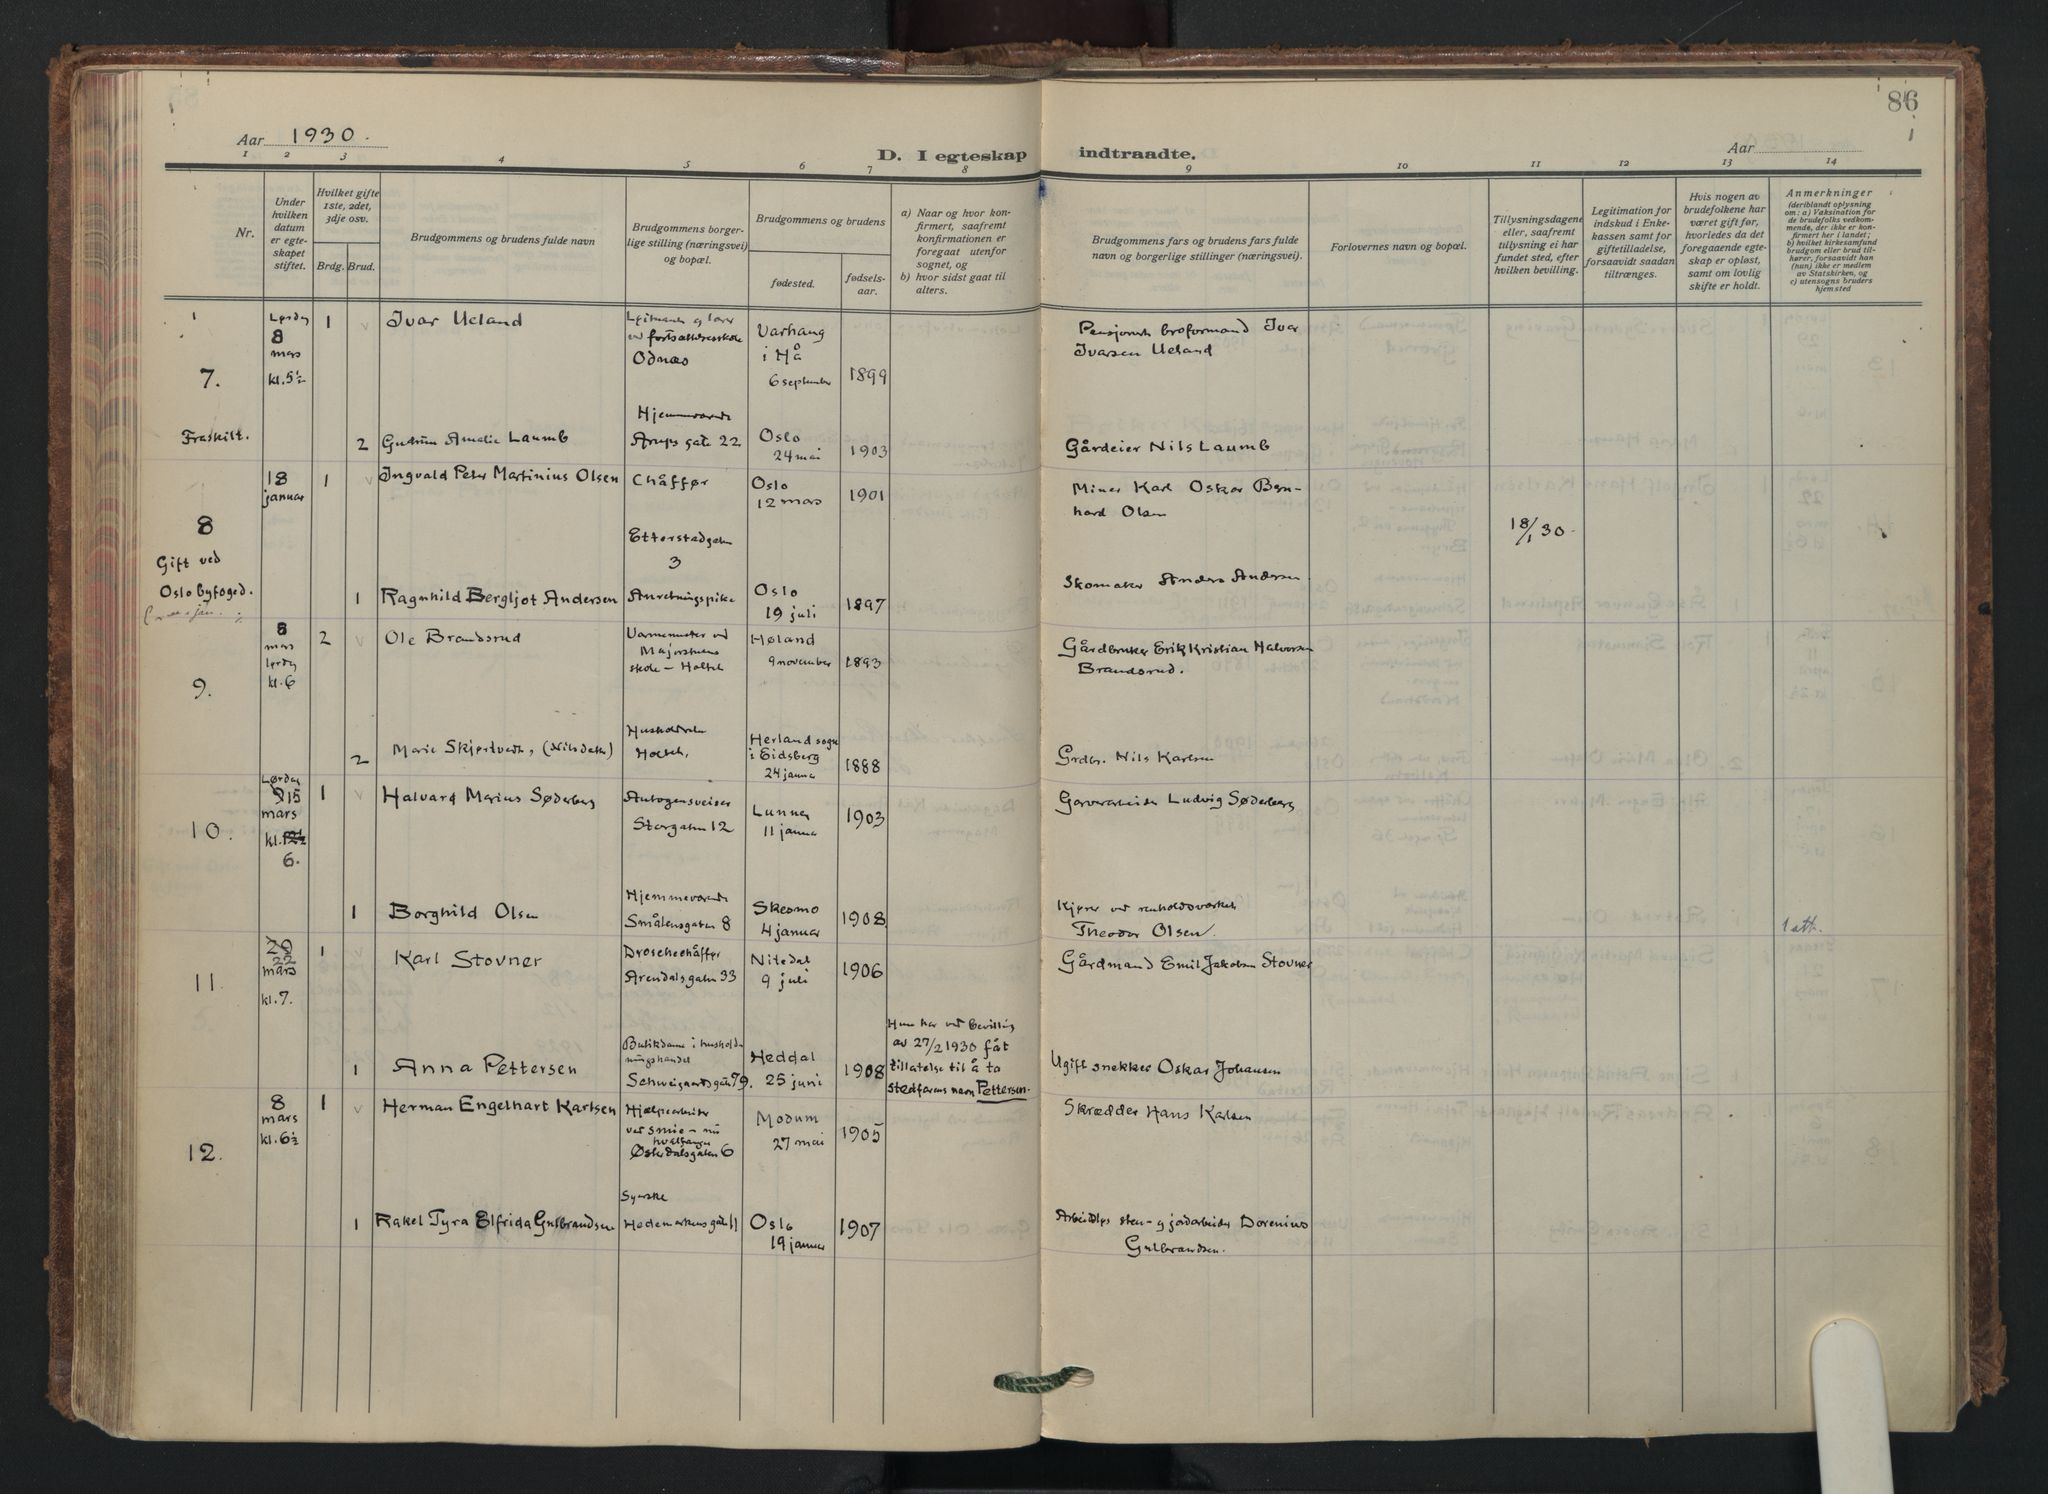 86
Aar 1930.
D. I egteskap indtraadte.
Aar
1 2 3 4 5 6 7 8 9 10 11 12 13 14
Nr.
Under hvilken datum er egte-skapet stiftet.
Hvilket gifte 1ste, 2det, 3dje osv.
Brdg. Brud.
Brudgommens og brudens fulde navn
Brudgommens borger-lige stilling (næringsvei) og bopæl.
Brudgommens og brudens
fødested.
fødsels-aar.
a) Naar og hvor kon-firmert, saafremt konfirmationen er foregaat utenfor sognet, og
b) hvor sidst gaat til alters.
Brudgommens fars og brudens fars fulde navn og borgerlige stillinger (næringsvei).
Forlovernes navn og bopæl.
Tillysningsdagene eller, saafremt tillysning ei har fundet sted, efter hvilken bevilling.
Legitimation for indskud i Enke-kassen samt for giftetilladelse, forsaavidt saadan tiltrænges.
Hvis nogen av brudefolkene har været gift før, hvorledes da det foregaaende egte-skap er opløst, samt om lovlig skifte er holdt.
Anmerkninger
(deriblandt oplysning om: a) Vaksination for de brudefolks vedkom-mende, der ikke er kon-firmert her i landet; b) hvilket kirkesamfund brudgom eller brud til-hører, forsaavidt han (hun) ikke er medlem av Statskirken, og c) utensogns bruders hjemsted
7.
Lørdag
8
mars
kl. 5½
1
Ivar Ueland
ved fortsættelsesskole
Odnæs
Varhaug
i Hå
6 september
1899
Pensjonert broformand Ivar
Ivarsen Ueland
Fraskilt.
2
Gudrun Amalie Laumb
Hjemmeværende
Arups gate 22
Oslo
24 mai
1903
Gårdeier Nils Laumb
8
Gift ved
Oslo byfoged.
18
januar
1
Ingvald Peter Martinius Olsen
Chåffør
Etterstadgaten
3
Oslo
12 mars
1901
Miner Karl Oskar Bern-
hard Olsen
18/1 30.
1
Ragnhild Bergljot Andersen
Anretningspike
Oslo
19 juli
1897
Skomaker Anders Andersen
9.
8
mars
lørdag
kl. 6
2
Ole Brandsrud
Varmemester ved
Majorstuens
skole – Holtet
Høland
9 november
1893
Gårdbruker Erik Kristian Halvorsen
Brandsrud.
2
Marie Skjortvedt, (Nilsdatter)
Husholderske
Holtet.
Herland sogn
i Eidsberg
24 januar
1888
Grdbr. Nils Karlsen
10.
Lørdag
15
mars
kl.
6.
1
Halvard Marius Søderberg
Autogensveiser
Storgaten 12
Lunner
11 januar
1903
Garverarbeider Ludvig Søderberg
1
Borghild Olsen
Hjemmeværende
Smålensgaten 8
Skesmo
4 januar
1908
Kjører ved renholdsverket
Theodor Olsen.
1 att.
11.
22
mars
kl. 7.
1
Karl Stovner
Droschechåffør
Arendalsgaten 33
Nitedal
9 juli
1906
Gårdmand Emil Jakobsen Stovner
1
Anna Pettersen
Butikdame i hushold-
ningshandel
Schweigaardsgaten 79.
Heddal
25 juni
1908
Hun har ved bevilling
av 27/2 1930 fåt
tillatelse til å ta
stedfarens navn Pettersen.
Ugift snekker Oskar Johansen
12.
8
mars
kl. 6½
1
Herman Engelhart Karlsen
Hjælpearbeider
ved smie – nu
hvalfanger
Østerdalsgaten 6
Modum
27 mai
1905
Skrædder Hans Karlsen
1
Rakel Tyra Elfrida Gulbrandsen
Syerske
Hedemarkensgaten 11
Oslo
19 januar
1907
Arbeidløs sten- og jordarbeider Dorenius
Gulbrandsen.